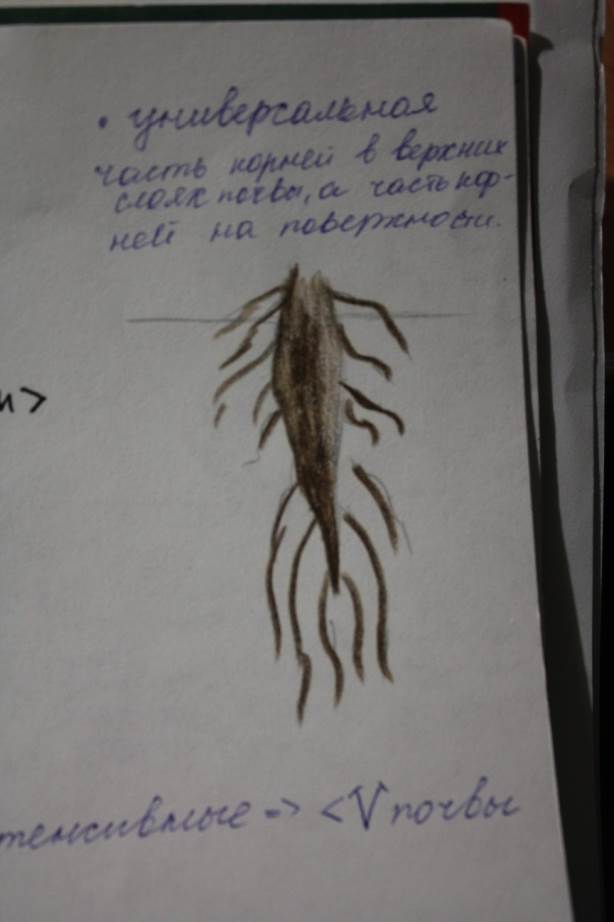 • универсальная
часть корней в верхних
слоях почвы, а часть кор-
ней на поверхности.
и>
тенсивные => <V почвы